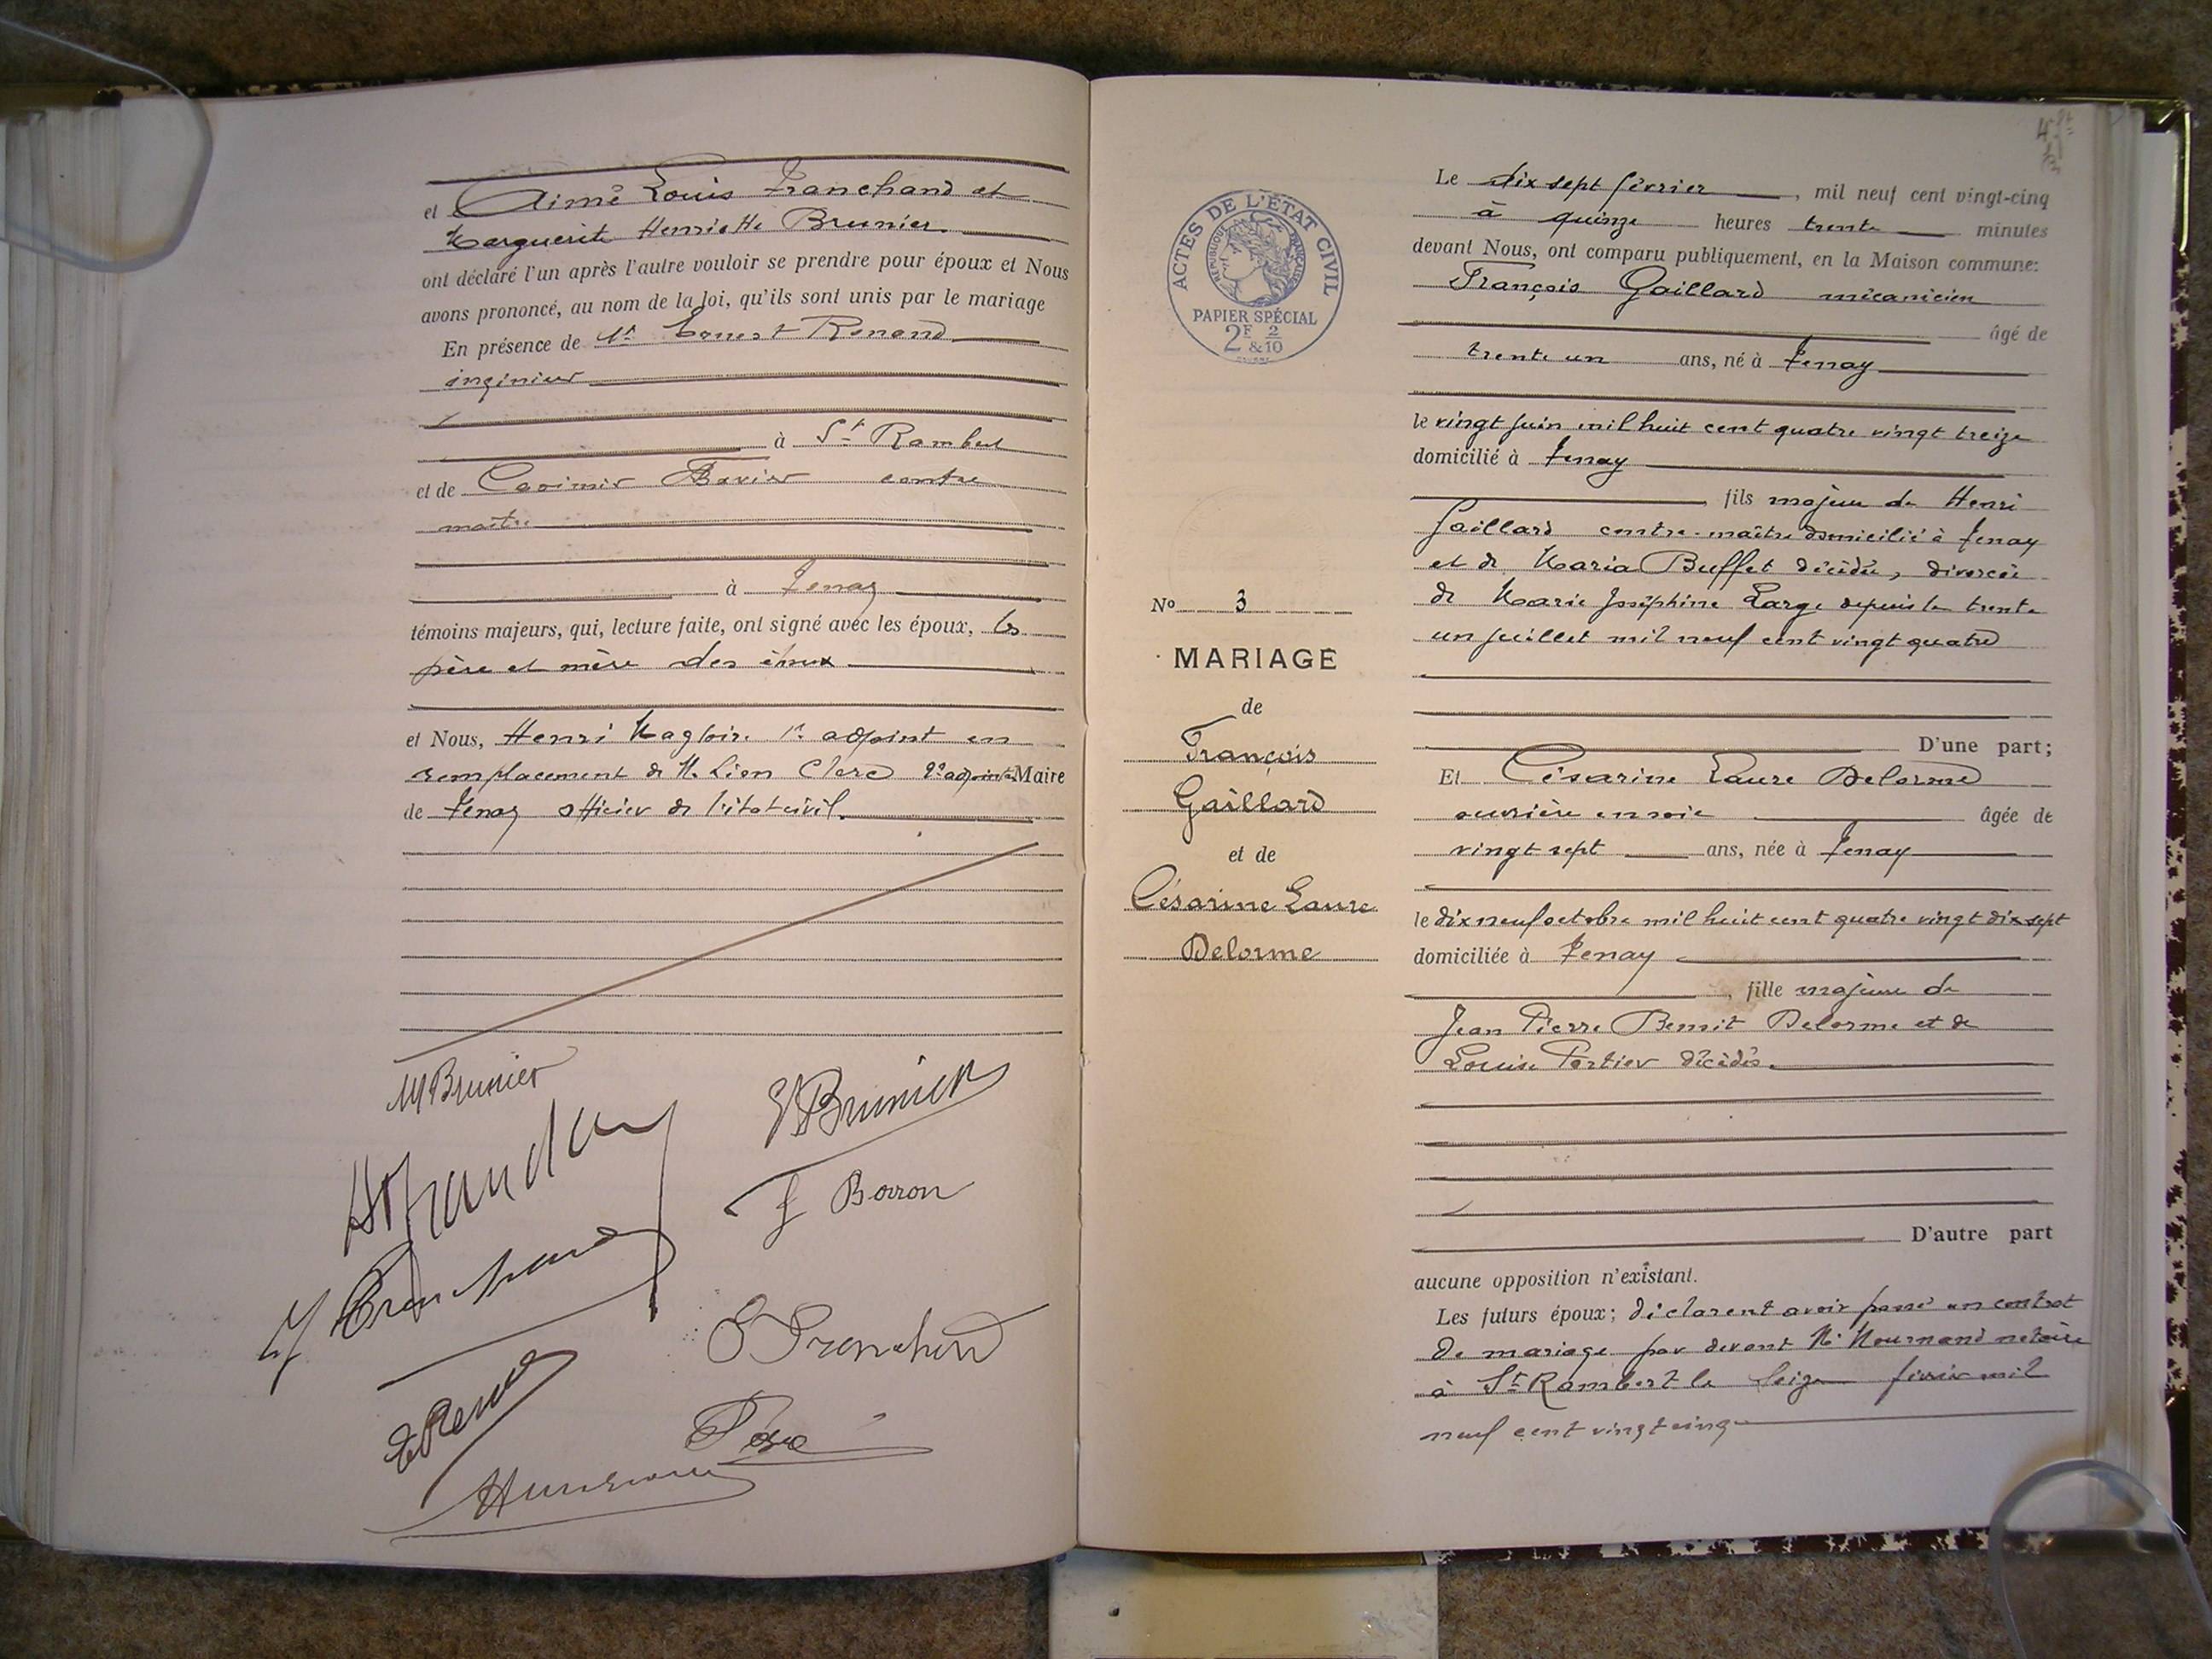 et Aimé Louis Tranchand et
Marguerite Henriette Brunier.
ont déclaré l'un après l'autre vouloir se prendre pour époux et Nous
avons prononcé, au nom de la loi, qu'ils sont unis par le mariage
En présence de Ernest Renand
ingénieur
à St Rambert
et de Casimir contre
maître
à Tenay
témoins majeurs, qui, lecture faite, ont signé avec les époux, les
père et mère des époux
et Nous, Henri Magloire 1er adjoint en
remplacement de M. Léon Clerc 2e adjoint Maire
de Tenay officier de l'état civil.
M Brunier
Brunier
Borron
E Tranchand
ACTES DE L'ÉTAT CIVIL
RÉPUBLIQUE FRANÇAISE
PAPIER SPÉCIAL
2F 2
&10
No 3
MARIAGE
de
François
Gaillard
et de
Césarine Laure
Delorme
Le dix sept février, mil neuf cent vingt-cinq
à quinze heures trente minutes
devant Nous, ont comparu publiquement, en la Maison commune:
François Gaillard mécanicien
âgé de
trente un ans, né à Tenay
le vingt juin mil huit cent quatre vingt treize
domicilié à Tenay
fils majeur de Henri
Gaillard contre-maître domicilié à Tenay
et de Maria Buffet décédée, divorcé
de Marie Joséphine Large depuis le trente
un juillet mil neuf cent vingt quatre
D'une part;
Et Césarine Laure Delorme
ouvrière en soie âgée de
vingt sept ans, née à Tenay
le dix neuf octobre mil huit cent quatre vingt dix sept
domiciliée à Tenay
, fille majeure de
Jean Pierre Benoit Delorme et de
Louise Portier décédés.
D'autre part
aucune opposition n'existant.
Les futurs époux; déclarent avoir passé un contrat
de mariage par devant Me Mournand notaire
à St Rambert le seize février mil
neuf cent vingt cinq